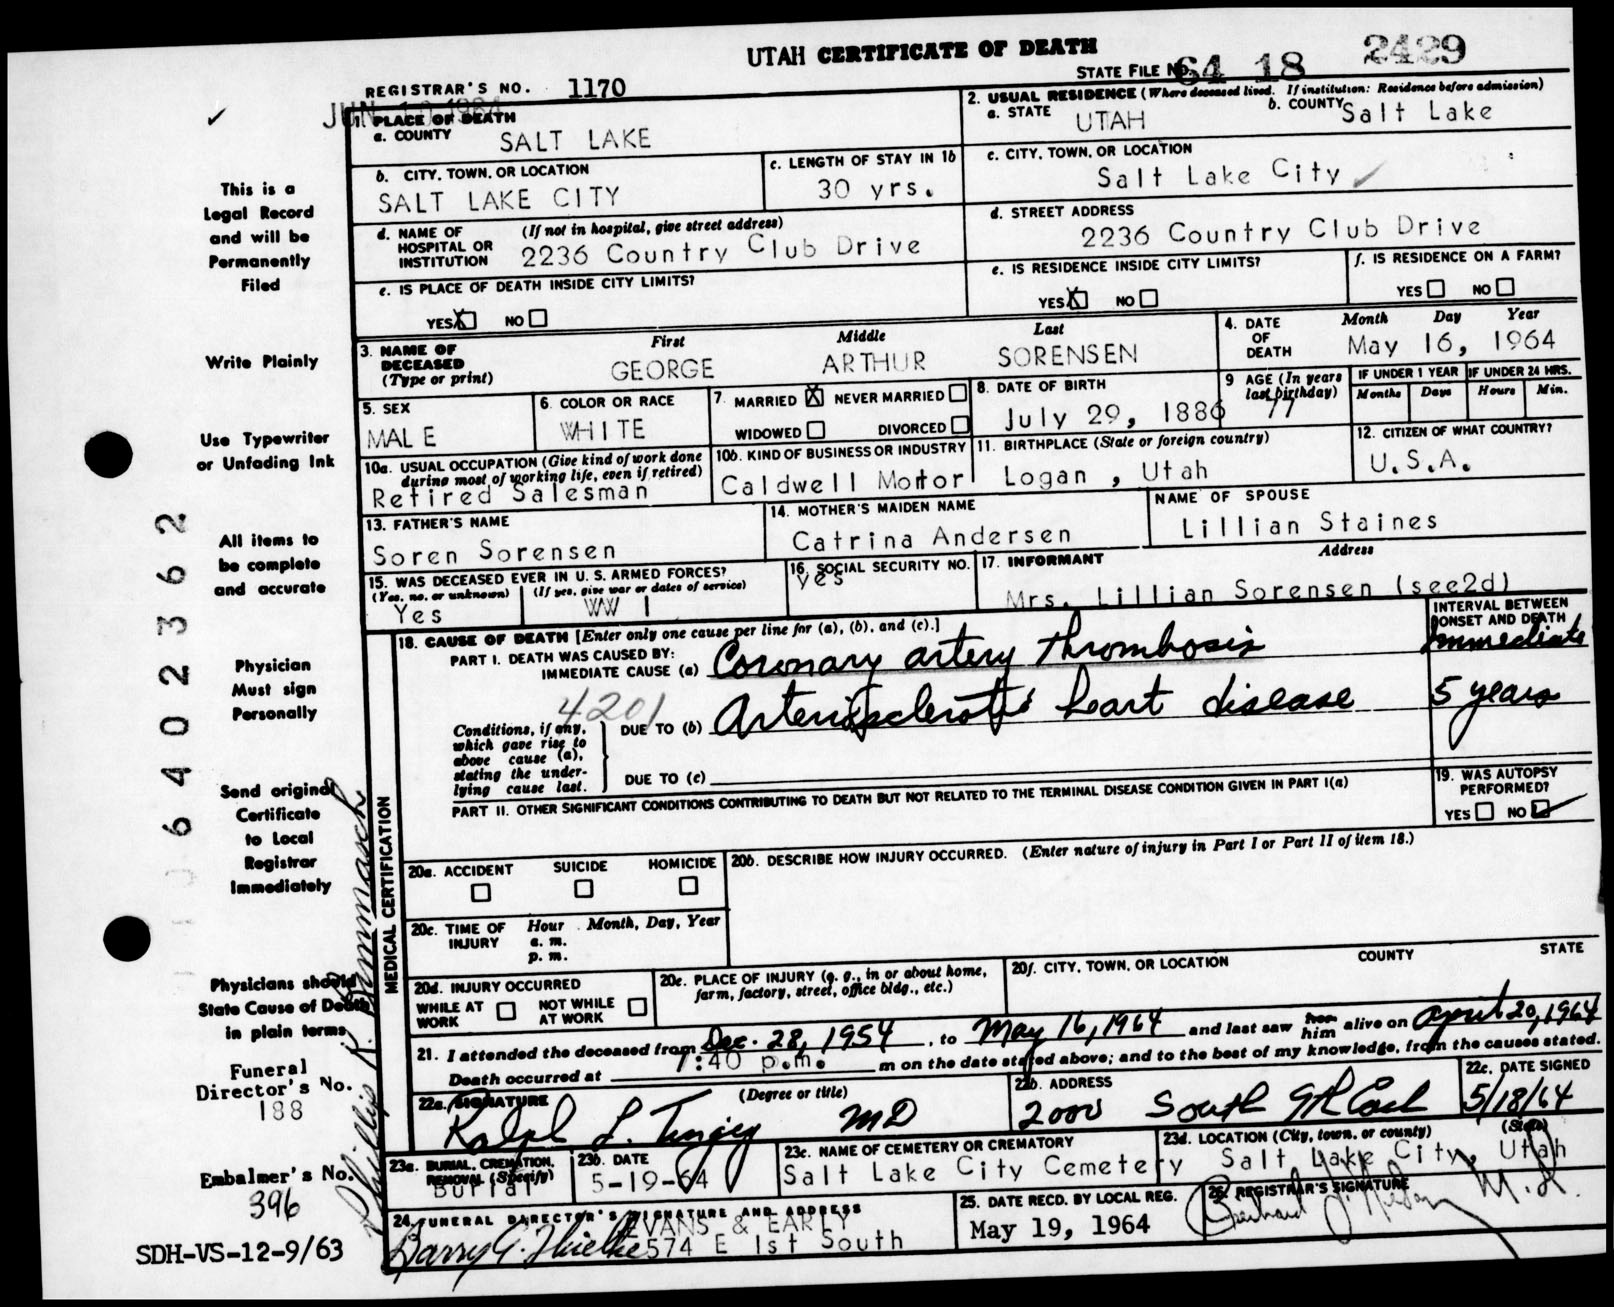 UTAH CERTIFICATE OF DEATH
2429
STATE FILE No. 64 18
REGISTRAR'S NO. 1170
JUN 10 1964
1. PLACE OF DEATH
a. COUNTY SALT LAKE
2. USUAL RESIDENCE (Where deceased lived. If institution: Residence before admission)
a. STATE UTAH
b. COUNTY Salt Lake
b. CITY, TOWN, OR LOCATION
SALT LAKE CITY
c. LENGTH OF STAY IN 1b
30 yrs.
c. CITY, TOWN, OR LOCATION
Salt Lake City
d. NAME OF HOSPITAL OR INSTITUTION (If not in hospital, give street address)
2236 Country Club Drive
d. STREET ADDRESS
2236 Country Club Drive
e. IS PLACE OF DEATH INSIDE CITY LIMITS?
YES X NO
e. IS RESIDENCE INSIDE CITY LIMITS?
YES X NO
f. IS RESIDENCE ON A FARM?
YES NO
3. NAME OF DECEASED (Type or print)
First Middle Last
GEORGE ARTHUR SORENSEN
4. DATE OF DEATH
Month Day Year
May 16, 1964
5. SEX
MALE
6. COLOR OR RACE
WHITE
7. MARRIED X NEVER MARRIED
WIDOWED DIVORCED
8. DATE OF BIRTH
July 29, 1886
9 AGE (In years last birthday)
77
IF UNDER 1 YEAR
Months Days
IF UNDER 24 HRS.
Hours Min.
10a. USUAL OCCUPATION (Give kind of work done during most of working life, even if retired)
Retired Salesman
10b. KIND OF BUSINESS OR INDUSTRY
Caldwell Mortor
11. BIRTHPLACE (State or foreign country)
Logan , Utah
12. CITIZEN OF WHAT COUNTRY?
U.S.A.
13. FATHER'S NAME
Soren Sorensen
14. MOTHER'S MAIDEN NAME
Catrina Andersen
NAME OF SPOUSE
Lillian Staines
15. WAS DECEASED EVER IN U. S. ARMED FORCES?
(Yes, no, or unknown) (If yes, give war or dates of service)
Yes WW I
16. SOCIAL SECURITY NO.
yes
17. INFORMANT Address
Mrs. Lillian Sorensen (see2d)
18. CAUSE OF DEATH [Enter only one cause per line for (a), (b), and (c).]
INTERVAL BETWEEN ONSET AND DEATH
PART I. DEATH WAS CAUSED BY:
IMMEDIATE CAUSE (a) Coronary artery thrombosis
Immediate
4201
Conditions, if any, which gave rise to above cause (a), stating the underlying cause last.
DUE TO (b) Arteriosclerotic heart disease
5 years
DUE TO (c)
PART II. OTHER SIGNIFICANT CONDITIONS CONTRIBUTING TO DEATH BUT NOT RELATED TO THE TERMINAL DISEASE CONDITION GIVEN IN PART I(a)
19. WAS AUTOPSY PERFORMED?
YES NO ✓
MEDICAL CERTIFICATION
20a. ACCIDENT SUICIDE HOMICIDE
20b. DESCRIBE HOW INJURY OCCURRED. (Enter nature of injury in Part I or Part II of item 18.)
20c. TIME OF INJURY
Hour Month, Day, Year
a. m.
p. m.
20d. INJURY OCCURRED
WHILE AT WORK NOT WHILE AT WORK
20e. PLACE OF INJURY (e. g., in or about home, farm, factory, street, office bldg., etc.)
20f. CITY, TOWN, OR LOCATION COUNTY STATE
21. I attended the deceased from Dec. 28, 1954, to May 16, 1964 and last saw him alive on April 20, 1964
Death occurred at 7:40 p.m. m on the date stated above; and to the best of my knowledge, from the causes stated.
22a. SIGNATURE (Degree or title)
Ralph L. Tingey MD
22b. ADDRESS
2000 South 9th East
22c. DATE SIGNED
5/18/64
23a. BURIAL, CREMATION, REMOVAL (Specify)
Burial
23b. DATE
5-19-64
23c. NAME OF CEMETERY OR CREMATORY
Salt Lake City Cemetery
23d. LOCATION (City, town, or county) (State)
Salt Lake City, Utah
24. FUNERAL DIRECTOR'S SIGNATURE AND ADDRESS
EVANS & EARLY
574 E 1st South
25. DATE RECD. BY LOCAL REG.
May 19, 1964
26. REGISTRAR'S SIGNATURE
M.D.
This is a
Legal Record
and will be
Permanently
Filed
Write Plainly
Use Typewriter
or Unfading Ink
All items to
be complete
and accurate
Physician
Must sign
Personally
Send original
Certificate
to Local
Registrar
Immediately
Physicians should
State Cause of Death
in plain terms
Funeral
Director's No.
188
Embalmer's No.
396
SDH-VS-12-9/63
6402362